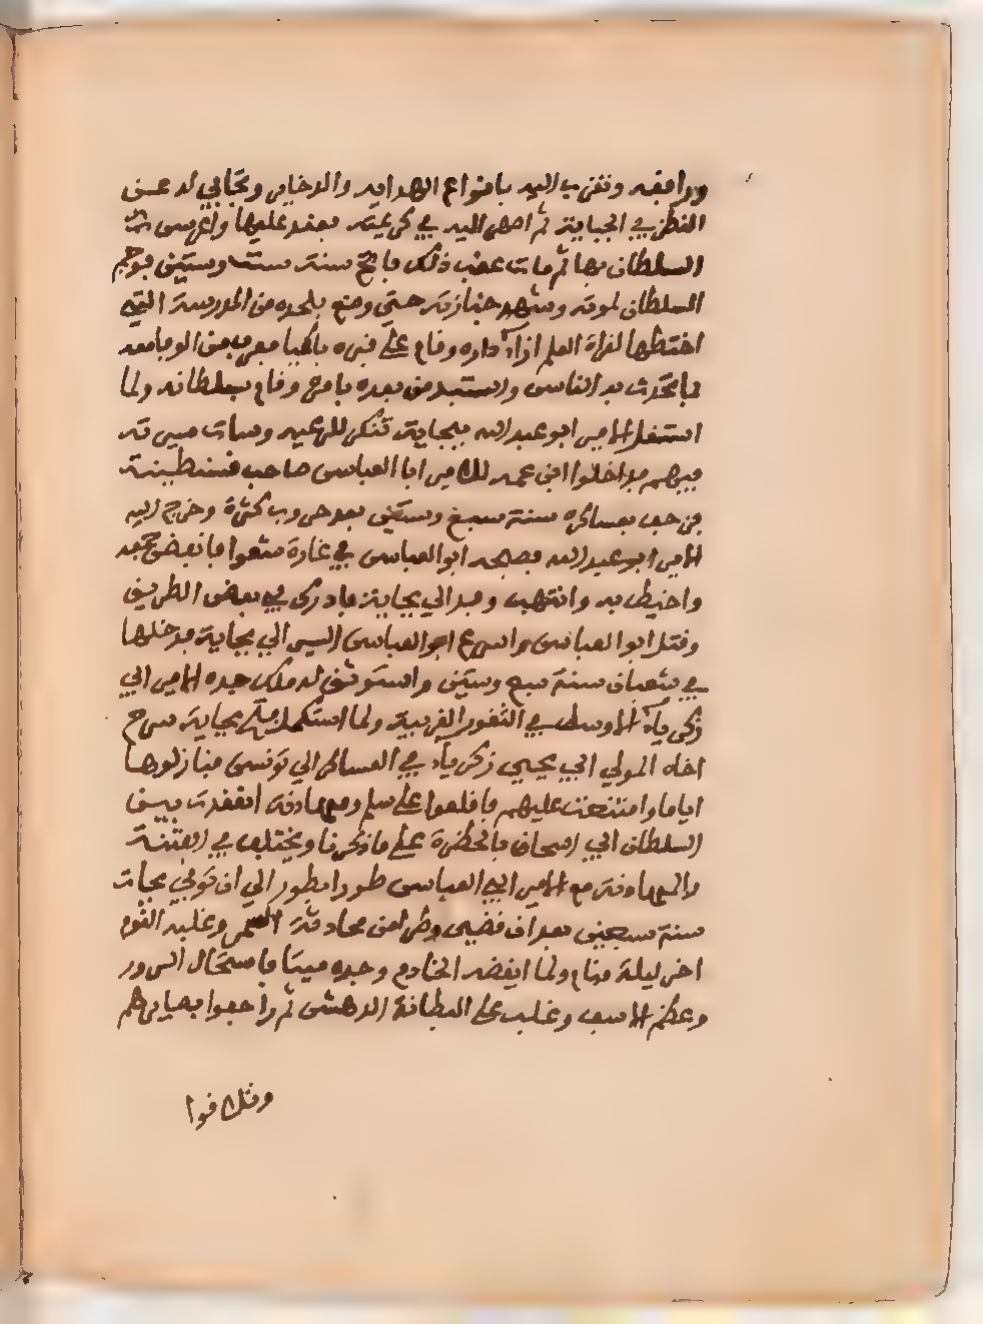 ورافقه وتقرب اليه بانواع الهدايه والذخاير وتجافي له عن
النظر في الجباية ثم اصهر اليه في كريمته بعقد عليها واعرس
السلطان بها ثم مات عقب ذلك فاتح سنة ست وستين فوجم
السلطان لموته وشهد جنازته حتى وضع بلحده من المدرسة التي
اختطها لقراة العلم ازاء داره وقام على قبره باكيا من الوجا معه
بما تحدث به الناس واستبد من بعده بامره وقام بسلطانه ولما
استقل الامير ابو عبد الله ببجاية تنكر للرعيه وسات سيرته
فيهم فداخلوا ابن عمه الامير ابا العباس صاحب قسنطينة
فزحف بعساكره سنة سبع وستين بعد حروب كثيرة وخرج اليه
الامير ابو عبد الله فصبحه ابو العباس في غارة شعوا فانفض جمعه
واحيط به وانتهب وفر الي بجاية فادرك في بعض الطريق
وقتل ابو العباس واسرع ابو العباس السير الي بجاية فدخلها
في شعبان سنة سبع وستين واستوثق له ملك جده الامير ابي
زكرياء الاوسط في الثغور الغربية ولما استكمل فتح بجاية سرح
اخاه المولي ابي يحيى زكرياء في العساكر الي تونس فنازلوها
اياما وامتنعت عليهم فاقلعوا على سلم ومهادنة انعقدت بين
السلطان ابي اسحاق بالحضرة على ما ذكرنا ويختلف في الفتنة
والمهادنة مع الامير ابي العباس طورا بطور الي ان توفي فجات
سنة سبعين بعد ان قضى وطرا من محادثة السمر وغلبه النوم
اخر ليلة فنام ولما ايقضه الخادم وجده ميتا فاستحال السرور
وعظم الاسف وغلب على البطانة الدهش ثم راجعوا بصايرهم
وتلافوا